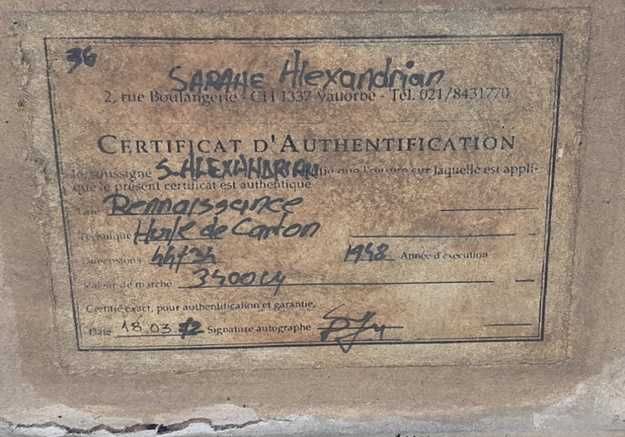 36
SARANE Alexandrian
2, rue Boulangerie - CH 1337 Vallorbe - Tél. 021/8431770
CERTIFICAT D'AUTHENTIFICATION
soussigné S. ALEXANDRIAN que sur laquelle est appli-
que le présent certificat est authentique
Rennaissance
Technique Huile de Carton
Dimensions 44/34 1948 Année d'exécution
Valeur de marché 3400
Certifié exact, pour authentification et garantie,
Date 18.03 Signature autographe